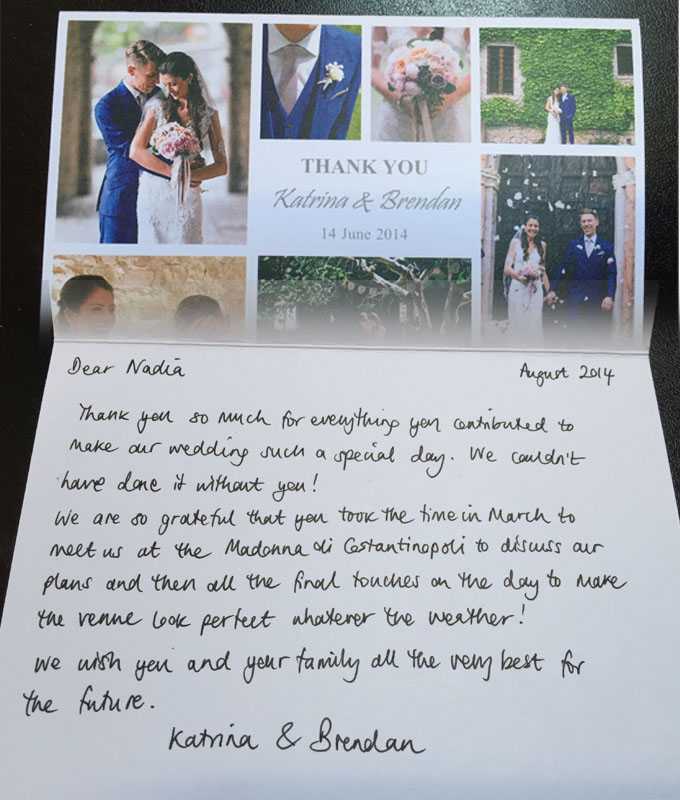 THANK YOU
Katrina & Brendan
14 June 2014
Dear Nadia
August 2014
Thank you so much for everything you contributed to
make our wedding such a special day. We couldn't
have done it without you!
We are so grateful that you took the time in March to
meet us at the Madonna di Costantinopoli to discuss our
plans and then all the final touches on the day to make
the venue look perfect whatever the weather!
We wish you and your family all the very best for
the future.
Katrina & Brendan